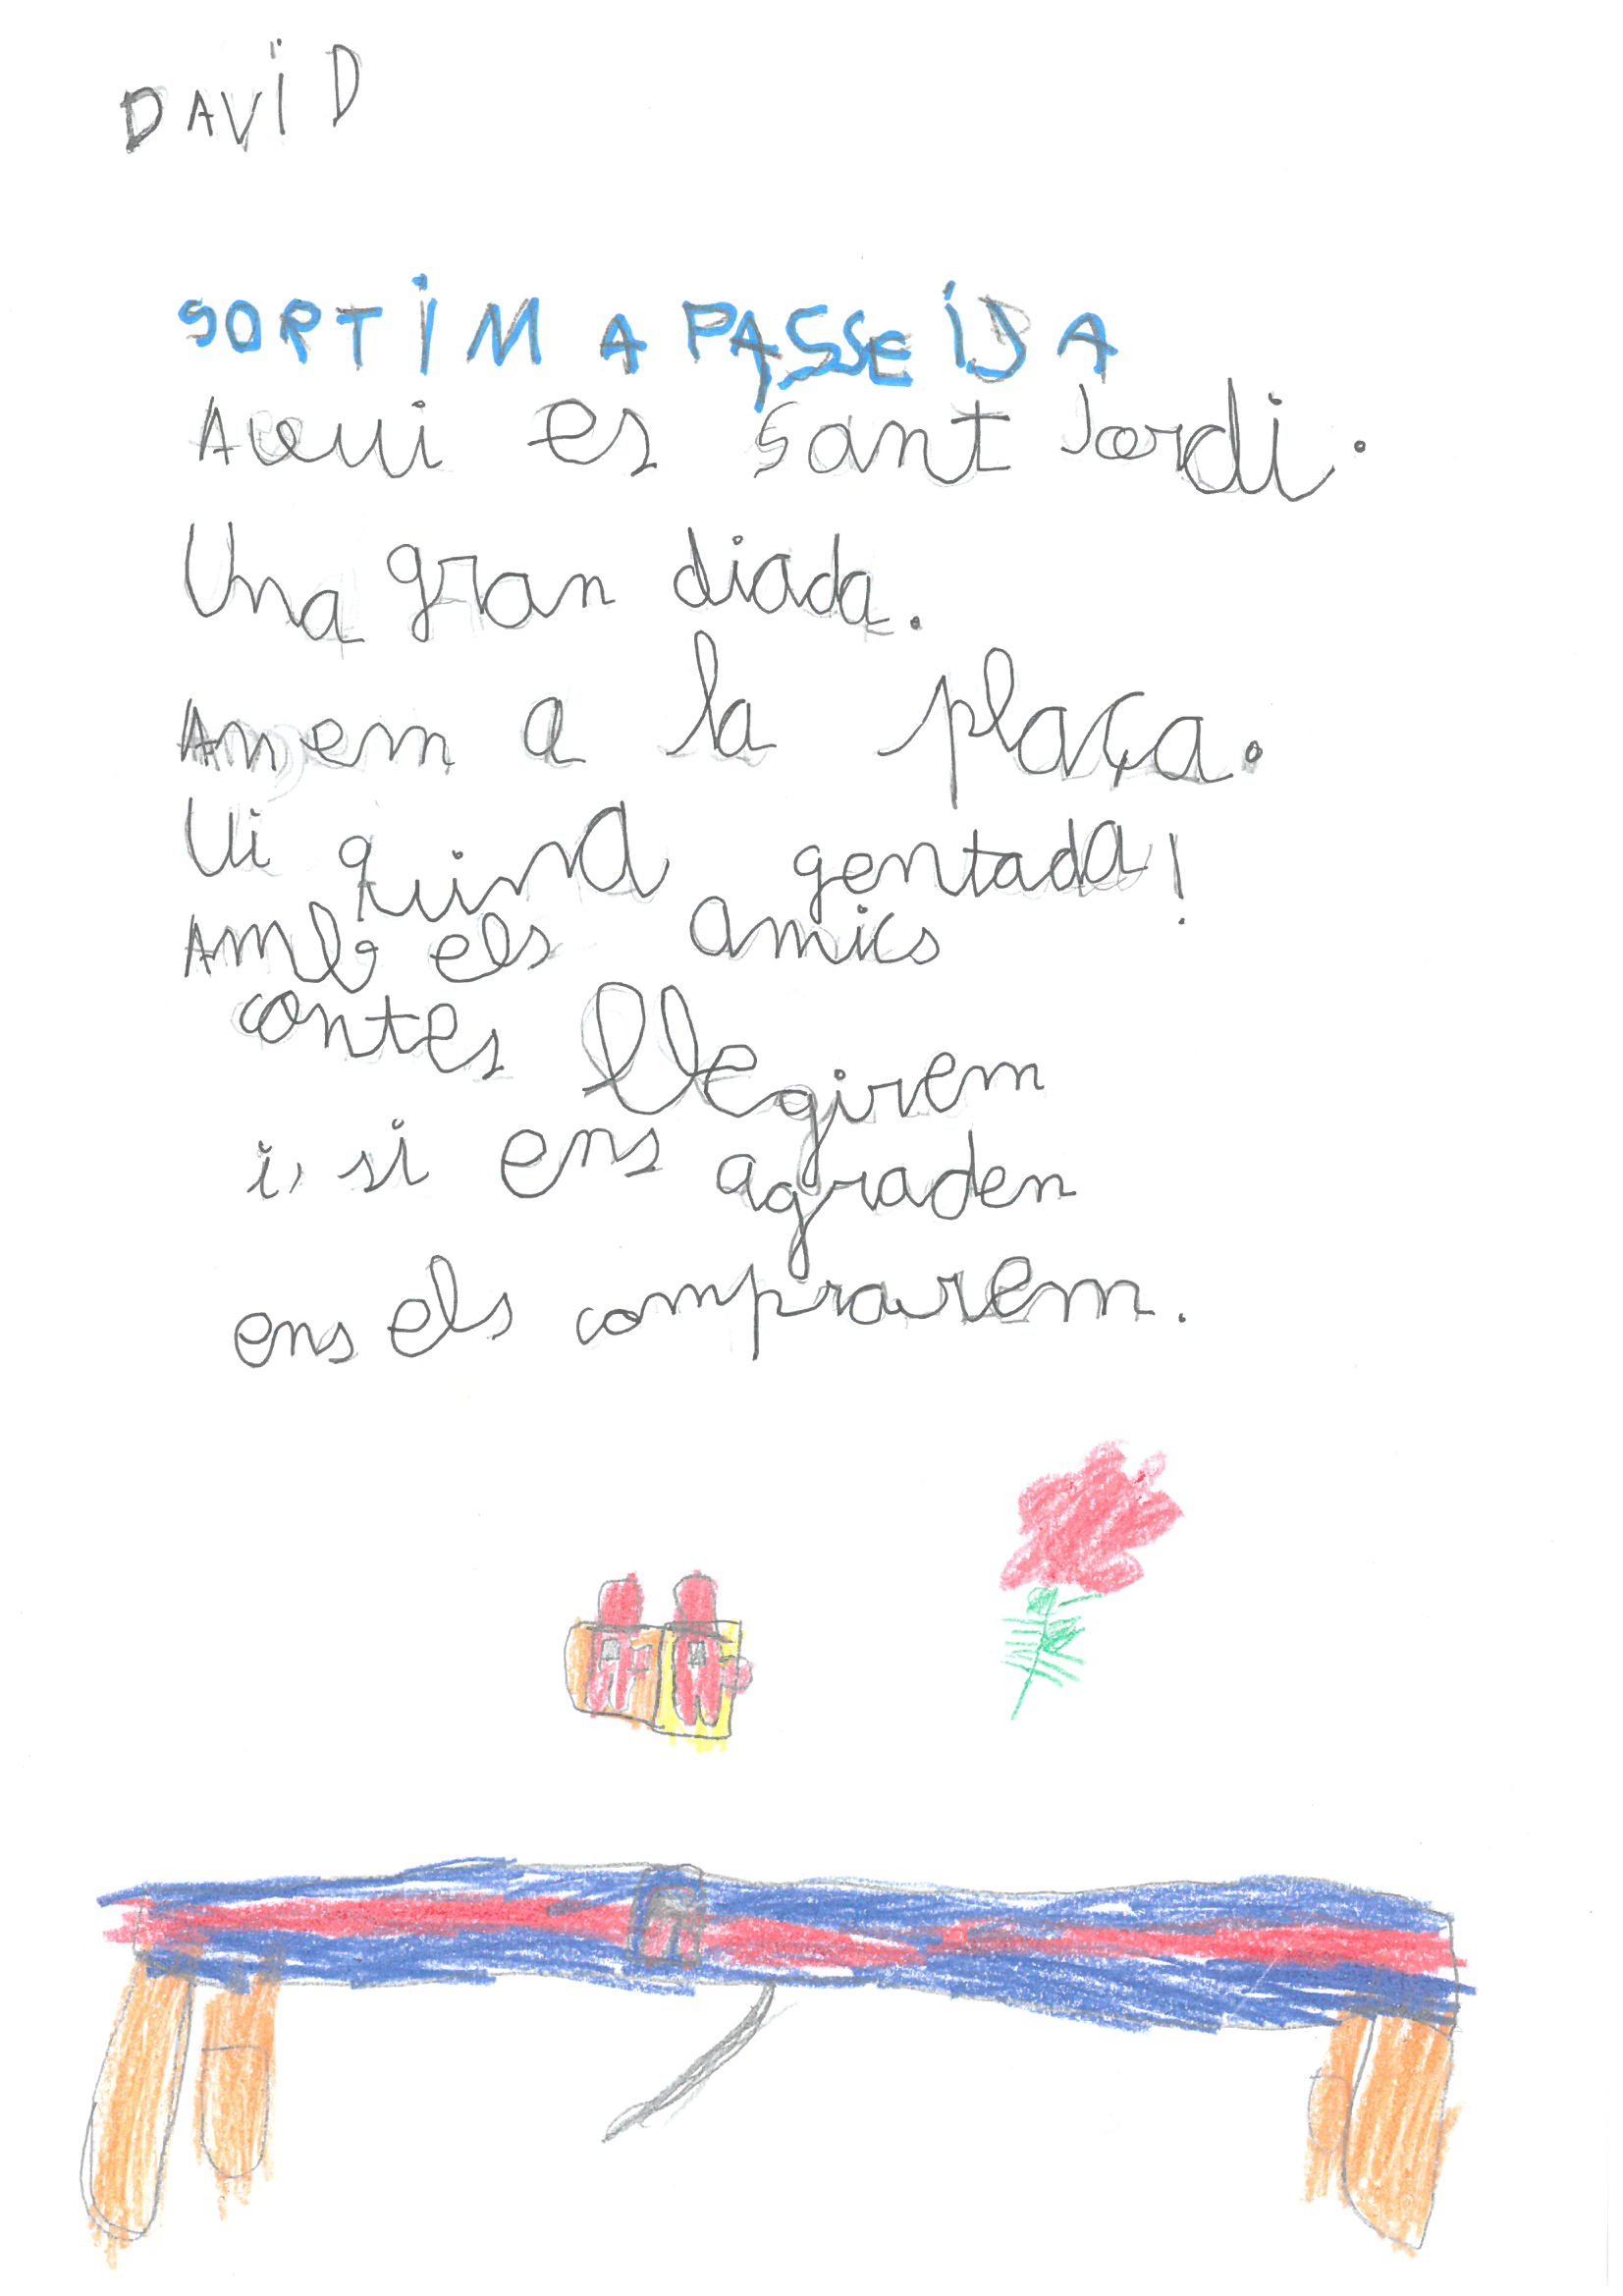 DAVID
SORTIM A PASSEJA
Avui es Sant Jordi.
Una gran diada.
Anem a la plaça.
Ui quina gentada!
Amb els amics
contes llegirem
i, si ens agraden
ens els comprarem.